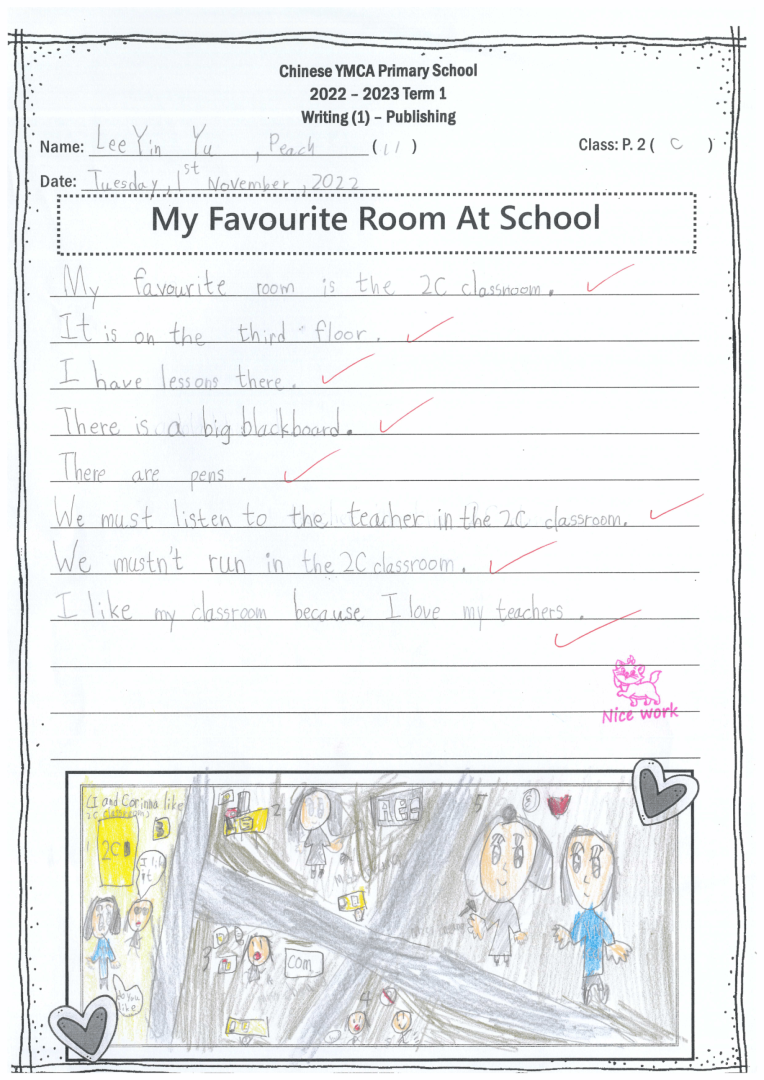 Chinese YMCA Primary School
2022 – 2023 Term 1
Writing (1) – Publishing
Name: Lee Yin Yu , Peach (11) Class: P. 2 ( C )
Date: Tuesday, 1st November, 2022
My Favourite Room At School
My favourite room is the 2C classroom.
It is on the third floor.
I have lessons there.
There is a big blackboard.
There are pens.
We must listen to the teacher in the 2C classroom.
We mustn't run in the 2C classroom.
I like my classroom because I love my teachers.
Nice work
I and Corinna like
2C classroom
2C
I like
it
do you
like
2
3
com
4
5